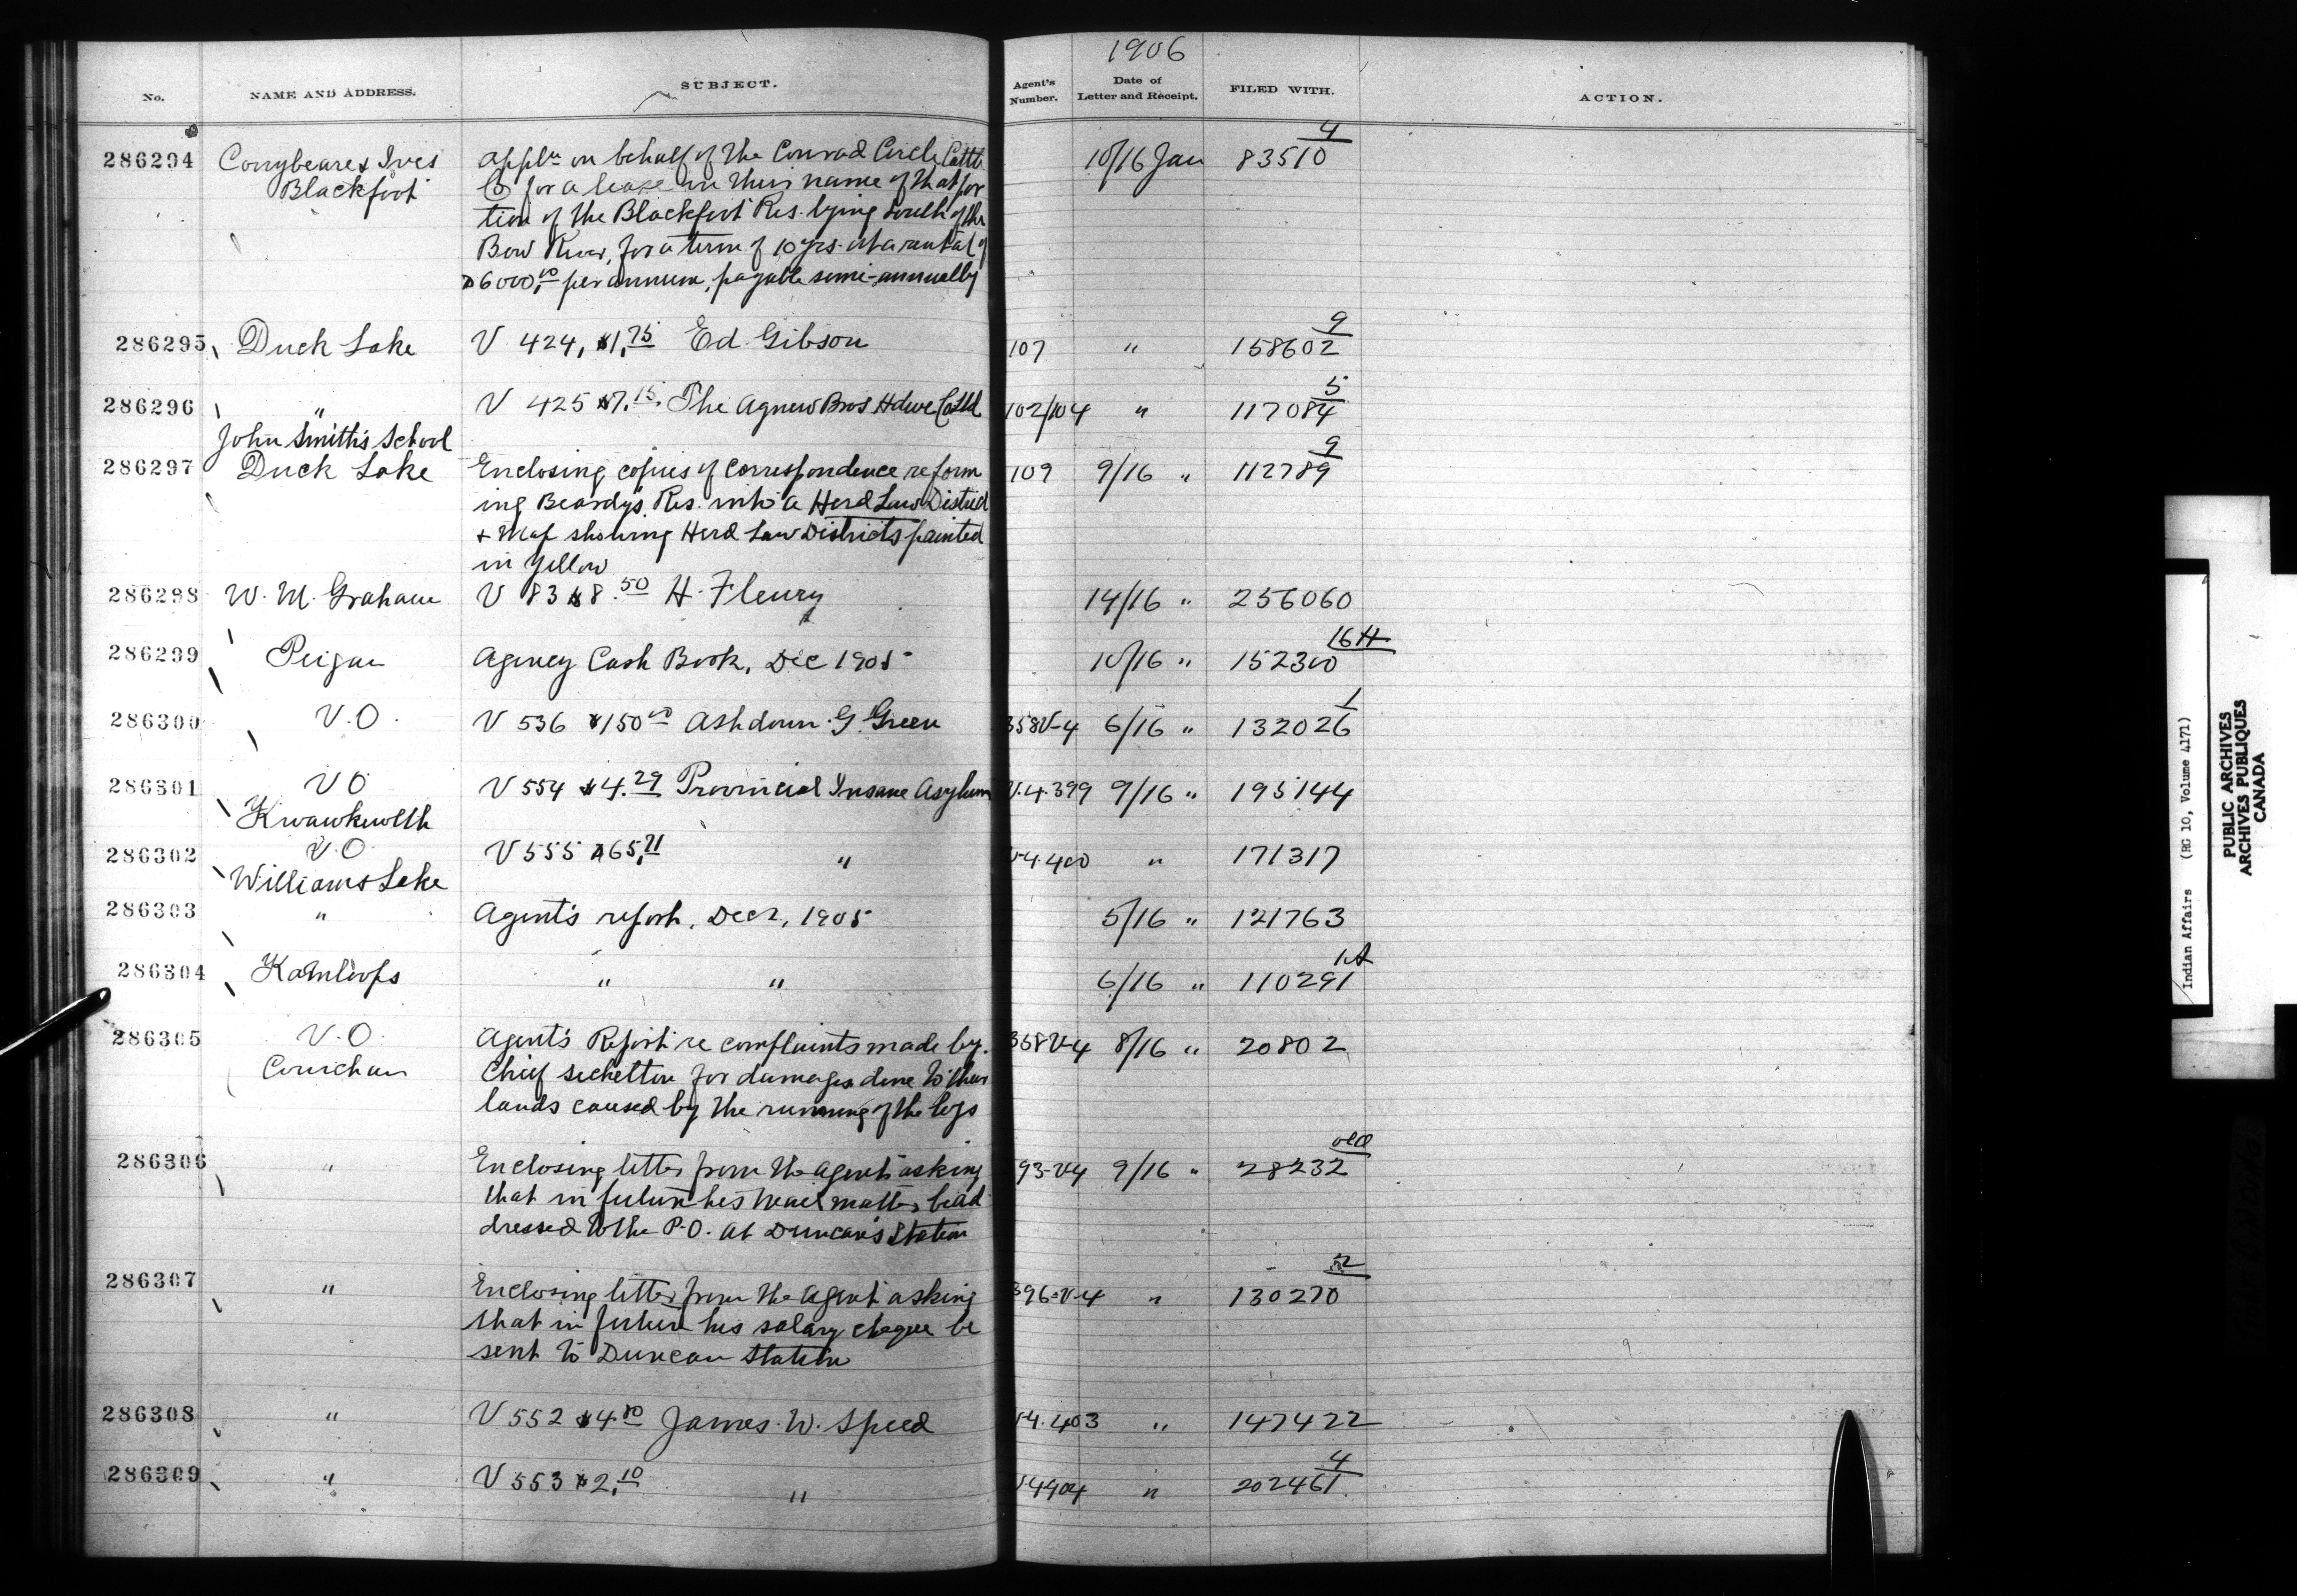 1906
No. NAME AND ADDRESS. SUBJECT. Agent's Number. Date of Letter and Receipt. FILED WITH. ACTION.
4
286294 Conybeare & Ives Appln on behalf of the Conrad Circle Cattle 10/16 Jan 83510
Blackfoot Co for a lease in their name of that por
tion of the Blackfoot Res. lying south of the
Bow River, for a term of 10 yrs. at a rental of
$6000.00 per annum, payable semi-annually
9
286295 Duck Lake V 424, $1.75 Ed. Gibson 107 " 158602
5
286296 " V 425 $7.15. The Agnew Bros Hdwe Co Ltd 102/104 " 117084
John Smith's School
9
286297 Duck Lake Enclosing copies of correspondence re form 109 9/16 " 112789
ing Beardy's Res. into a Herd Law District
+ Map showing Herd Law Districts painted
in yellow
286298 W. M. Graham V 83 $8.50 H. Fleury 14/16 " 256060
16 H
286299 Peigan Agency Cash Book, Dec 1905 10/16 " 152300
1
286300 V.O. V 536 $150.00 Ashdown G. Green 358V-4 6/16 " 132026
286301 V O V 554 $4.29 Provincial Insane Asylum V.4.399 9/16 " 195144
Kwawkewlth
286302 V.O. V 555 $65.71 " V-4.400 " 171317
Williams Lake
286303 " Agent's report, Decr, 1905 5/16 " 121763
1A
286304 Kamloops " " 6/16 " 110291
286305 V.O. Agent's Report re complaints made by 368V-4 8/16 " 20802
Cowichan Chief Sechelton for damages done to their
lands caused by the running of the logs
old
286306 " Enclosing letter from the Agent asking 93-V4 9/16 " 28232
that in future his mail matter be ad
dressed to the P.O. at Duncan's Station
2
286307 " Enclosing letter from the Agent asking 396-V-4 " 130270
that in future his salary cheque be
sent to Duncan Station
286308 " V 552 $4.80 James. W. Speed V-4.403 " 147422
4
286309 " V 553 $2.10 " V-4404 " 202461
Indian Affairs (RG 10, Volume 4171)
PUBLIC ARCHIVES
ARCHIVES PUBLIQUES
CANADA